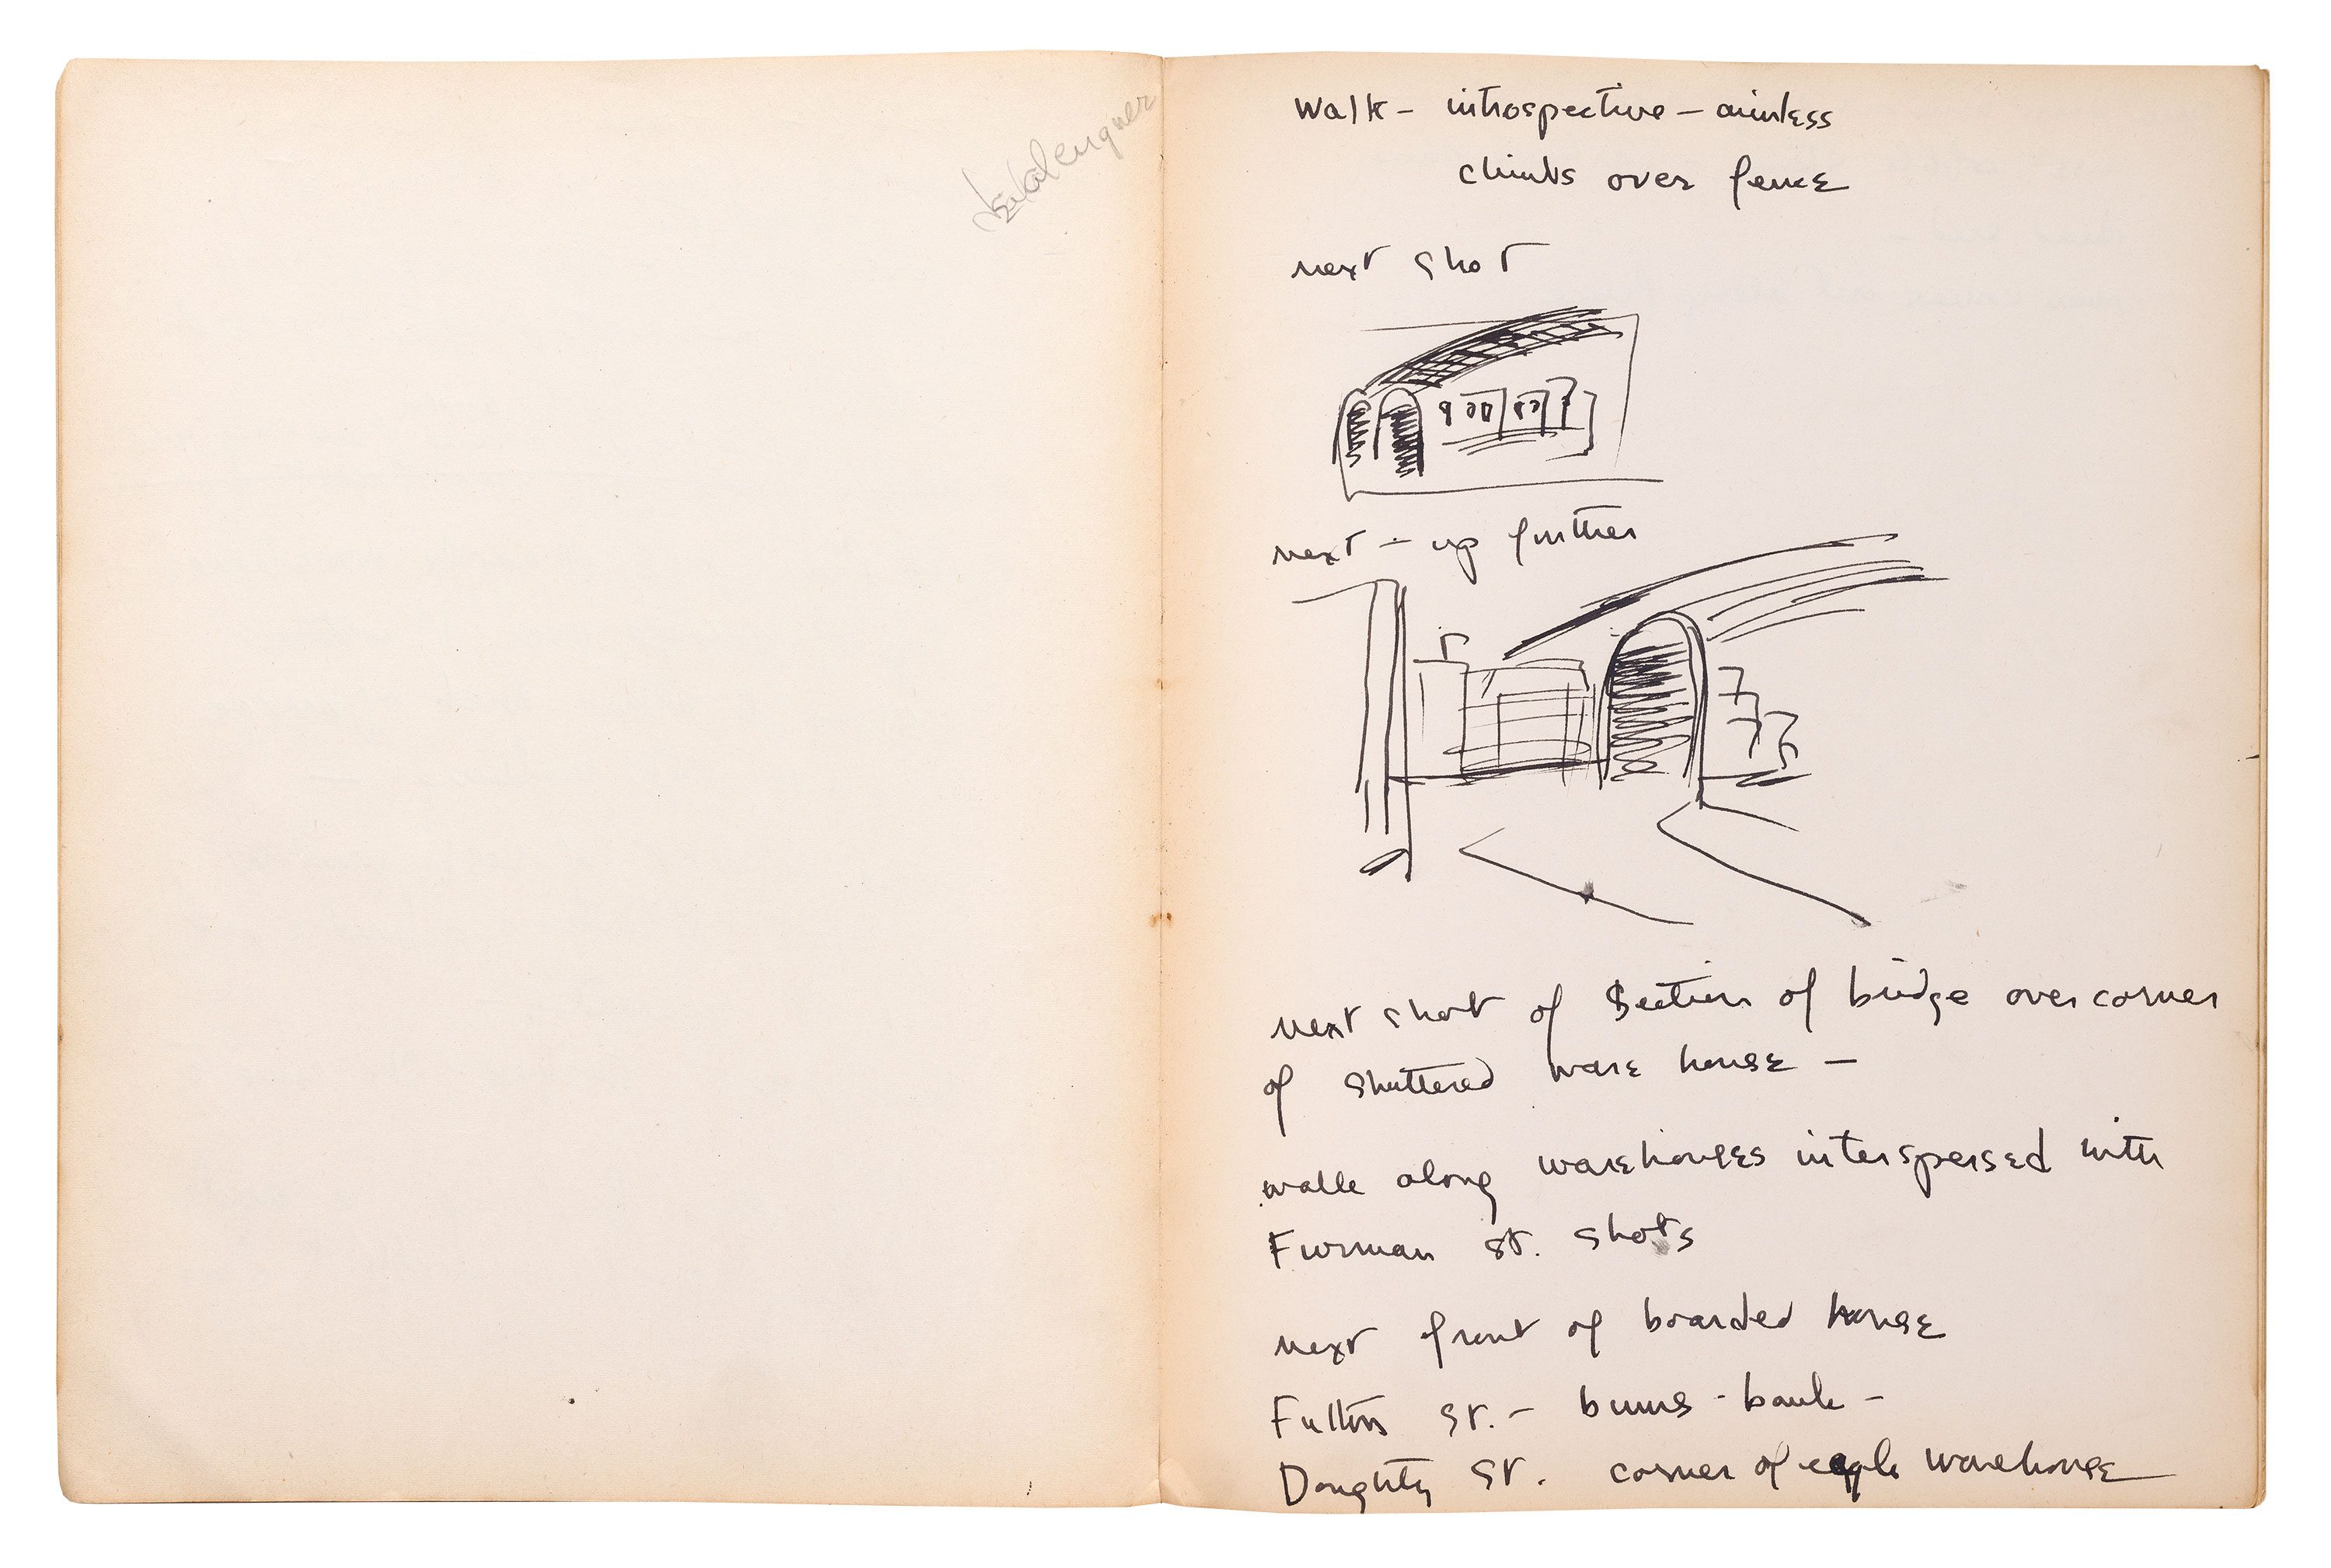 Walk - introspective - aimless
climbs over fence
next shot
next - up further
next shot of Section of bridge over corner
of shuttered ware house -
walk along warehouses interspersed with
Furman St. shots
next front of boarded house
Fulton St. - bums - bank -
Doughty St. corner of eagle warehouse